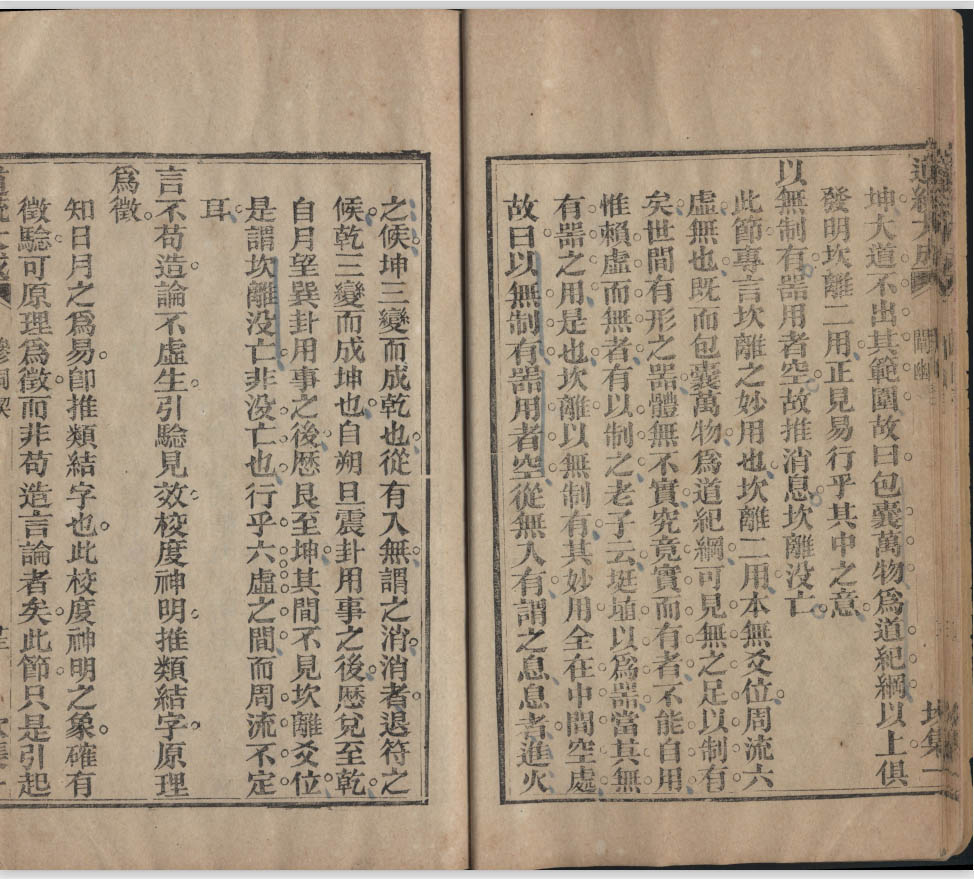 坤大道不出其範圍故曰包囊萬物爲道紀綱以上俱
發明坎離二用正見易行乎其中之意
以無制有器用者空故推消息坎離沒亡
此節專言坎離之妙用也坎離二用本無爻位周流六
虛無也既而包囊萬物爲道紀綱可見無之足以制有
矣世間有形之器體無不實究竟實而有者不能自用
惟賴虛而無者有以制之老子云埏埴以爲器當其無
有器之用是也坎離以無制有其妙用全在中間空處
故曰以無制有器用者空從無入有謂之息息者進火
之候坤三變而成乾也從有入無謂之消消者退符之
候乾三變而成坤也自朔旦震卦用事之後歷兌至乾
自月望巽卦用事之後歷艮至坤其間不見坎離爻位
是謂坎離沒亡非沒亡也行乎六虛之間而周流不定
耳
言不苟造論不虛生引驗見效校度神明推類結字原理
爲徵
知日月之爲易卽推類結字也此校度神明之象確有
徵驗可原理爲徵而非苟造言論者矣此節只是引起